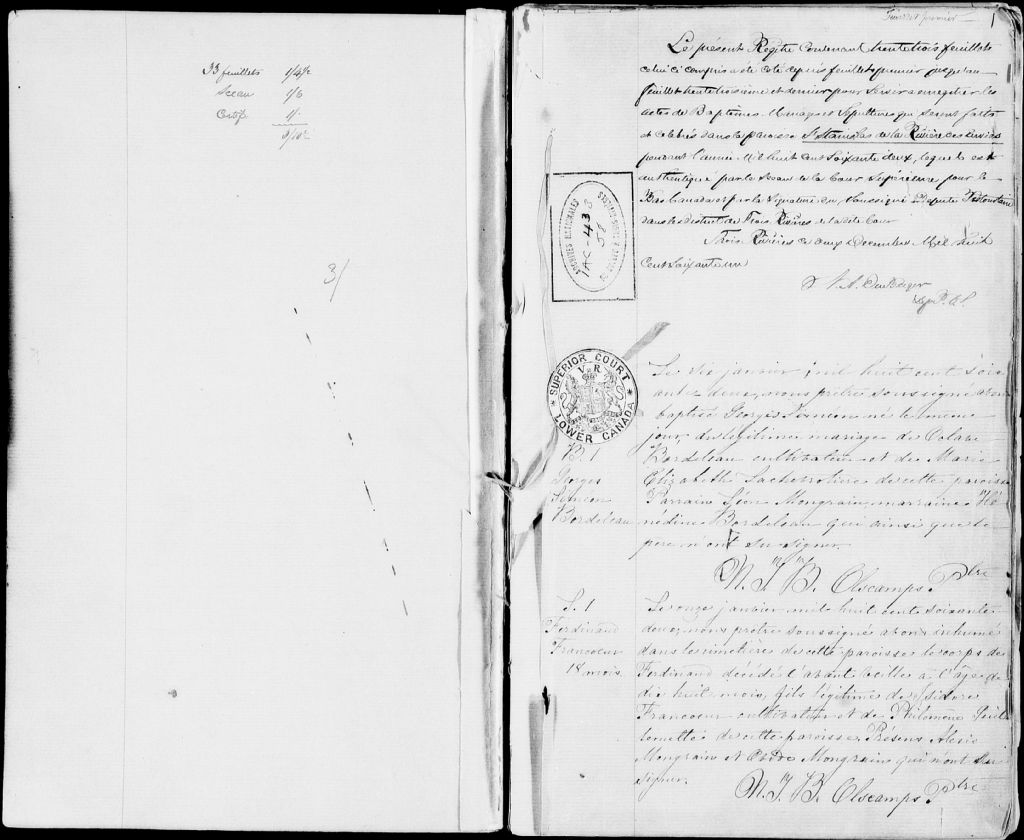 33 feuillets 1/4½
Sceau 1/6
Certif 1/.
3/
feuillet premier 1
Le présent Régitre Contenant trente trois feuillets
celui ci compris a été coté depuis feuillet premier jusqu'au
feuillet trente troisième et dernier pour servir a enregitrer les
actes de Baptêmes Mariages et Sépultures qui seront faits
et célébrés dans la paroisse St Stanislas de la Rivière des Envies
pendant l'année Mil huit cent soixante deux, lequel est
authentiqué par le Sceau de la Cour Supérieure pour le
Bas Canada et par la signature du Soussigné Député Protonotaire
dans le district de Trois Rivières de la dite Cour
Trois Rivières ce deux Décembre Mil huit
Cent soixante un
ARCHIVES NATIONALES
IAC-43
SUPERIOR COURT
V R
LOWER CANADA
B. 1
Georges
Siméon
Bordeleau
Le six janvier mil huit cent soix
ante deux, nous prêtre soussigné avons
baptisé Georges Siméon né le même
jour, du légitime mariage de
Bordeleau cultivateur et de Marie
Elizabeth Lachevrotière de cette paroisse
Parrain Léon Mongrain, marraine Hé
nédine Bordeleau qui ainsi que le
père n'ont su signer.
M. J. B. Olscamps Ptre
S. 1
Ferdinand
Francoeur
18 mois
Le onze janvier mil huit cent soixante
deux, nous prêtre soussigné avons inhumé
dans le cimetière de cette paroisse le corps de
Ferdinand décédé l'avant veille à l'âge de
dix huit mois, fils légitime de Isidore
Francoeur cultivateur et de Philomène
de cette paroisse. Présens Alexis
Mongrain et Mongrain qui n'ont su
signer.
M. J. B. Olscamps Ptre